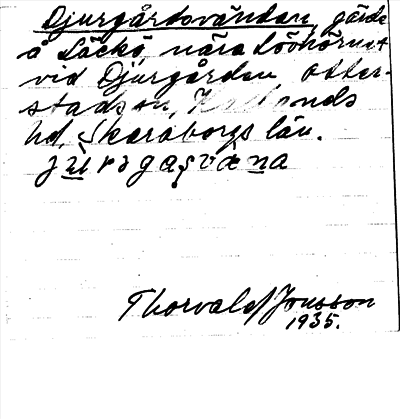 Djurgårdsvändan, gärde
å Läckö, nära Lövhörnet
vid Djurgården Otter-
stads sn, Kållands
hd, Skaraborgs län.
Thorvald Jonsson
1935.